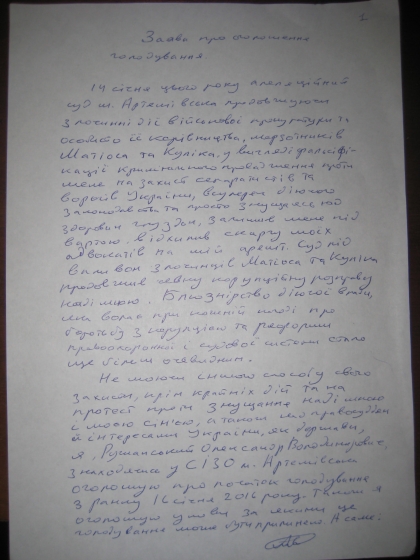 1
Заява про оголошення
голодування
14 січня цього року апеляційний
суд м. Артемівська продовжуючи
злочинні дії військової прокуратури та
особисто її керівництва, мерзотників
Матіоса та Куліка, у вигляді фальсифі-
кації кримінального провадження проти
мене на захист сепаратистів та
ворогів України, всупереч діючого
законодавства та просто знущаєсь над
здоровим глуздом, залишив мене під
вартою, відхилив скаргу моїх
адвокатів на мій арешт. Суд під
впливом злочинців Матіоса та Куліка
продовжив певну корупційну розправу
наді мною. Блюзнірство діючої влади,
яка волає при кожній нагоді про
боротьбу з корупцією та реформи
правоохоронної і судової системи стало
ще більш очевидним.
Не маючи іншого способу свого
захисту, крім крайніх дій та на
протест проти знущання наді мною
і моєю сім'єю, а також над правосуддям
й інтересами України, як держави,
я, Олександр Володимирович,
знаходячись у СІЗО м. Артемівська
оголошую про початок голодування
з ранку 16 січня 2016 року. Також я
оголошую умови за якими це
голодування може бути припинено. А саме: